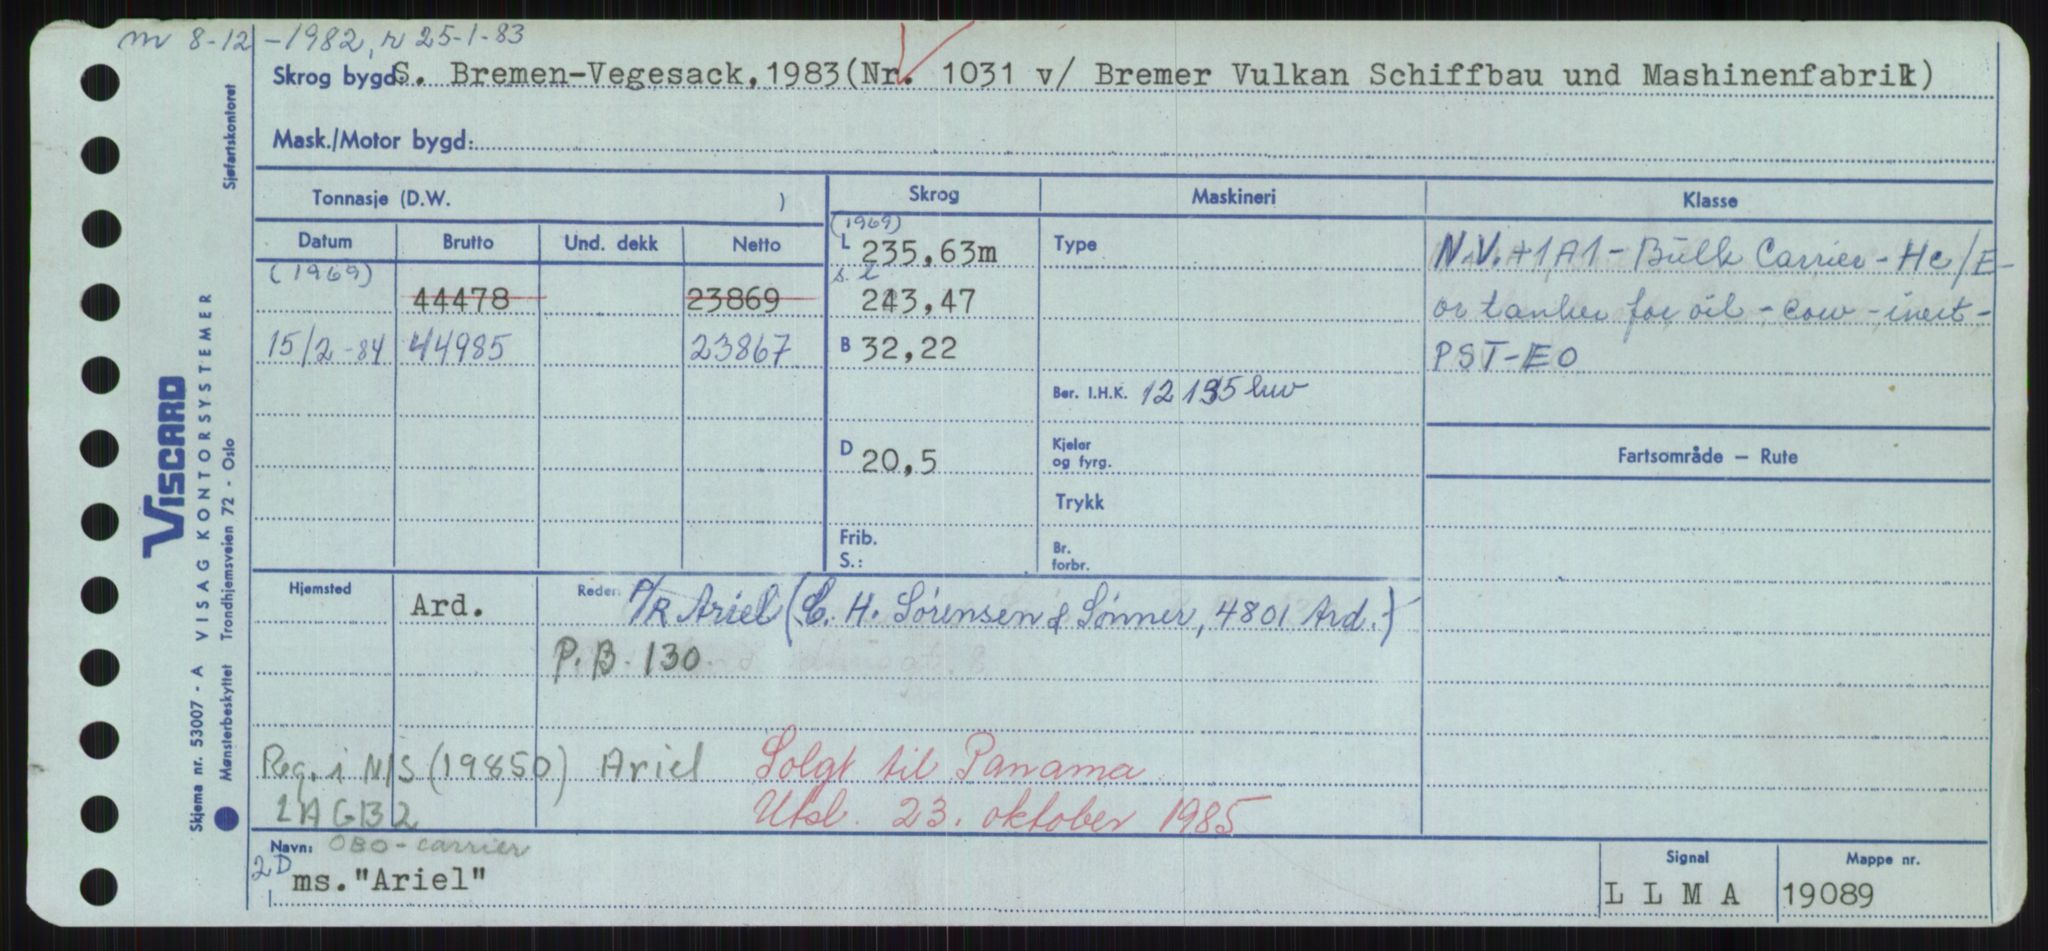 m 8-12-1982, r 25-1-83
Skrog bygd S. Bremen-Vegesack, 1983(Nr. 1031 v/ Bremer Vulkan Schiffbau und Mashinenfabrik)
Mask./Motor bygd:
Tonnasje (D.W. )
Skrog
Maskineri
Klasse
Datum Brutto Und. dekk Netto
(1969)
44478 23869
15/2-84 44985 23867
(1969)
L 235,63m
s.l
243,47
B 32,22
D 20,5
Frib.
S.:
Type
Ber. I.H.K. 12 195 kw
Kjeler
og fyrg.
Trykk
Br.
forbr.
N.V.+1A1 - Bulk Carrier - Hc/E
or tanker for oil - cow - inert -
PST-EO
Fartsområde — Rute
Hjemsted Ard.
Reder: P/R Ariel (C. H. Sørensen & Sønner, 4801 Ard.)
P.B. 130
Reg. i N/S (19850) Ariel Solgt til Panama
LAGB2 Utsl. 23. oktober 1985
Navn: OBO-carrier
2D ms."Ariel"
Signal
L L M A
Mappe nr.
19089
VISCARD
VISAG KONTORSYSTEMER
Trondhjemsveien 72 - Oslo
Skjema nr. 53007 - A
Mønsterbeskyttet
Sjøfartskontoret